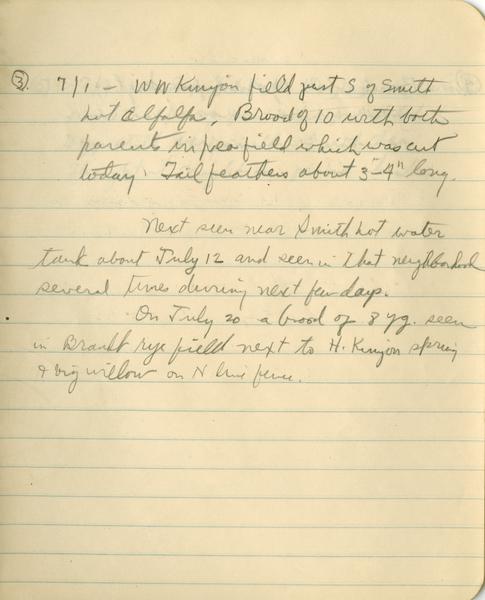 ③ 7/1 - WW Kinyon field just S of Smith
hot alfalfa, Brood of 10 with both
parents in pea field which was cut
today. Tail feathers about 3"-4" long.
Next seen near Smith hot water
tank about July 12 and seen in that neighborhood
several times during next few days.
On July 20 a brood of 8 yg. seen
in Brandt rye field next to H. Kinyon spring
& big willow on N line fence.